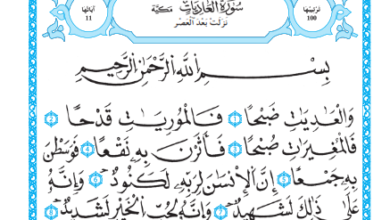 ترتيبها
100
سُورَةُ العَادِيَاتِ مَكِّيَّة
نَزَلَتْ بَعْدَ العَصْرِ
آياتها
11
بِسْمِ اللَّهِ الرَّحْمَٰنِ الرَّحِيمِ
وَالْعَٰدِيَٰتِ ضَبْحًا ١ فَالْمُورِيَٰتِ قَدْحًا ٢
فَالْمُغِيرَٰتِ صُبْحًا ٣ فَأَثَرْنَ بِهِ نَقْعًا ٤ فَوَسَطْنَ
بِهِ جَمْعًا ٥ إِنَّ الْإِنسَٰنَ لِرَبِّهِ لَكَنُودٌ ٦ وَإِنَّهُ
عَلَىٰ ذَٰلِكَ لَشَهِيدٌ ٧ وَإِنَّهُ لِحُبِّ الْخَيْرِ لَشَدِيدٌ ٨